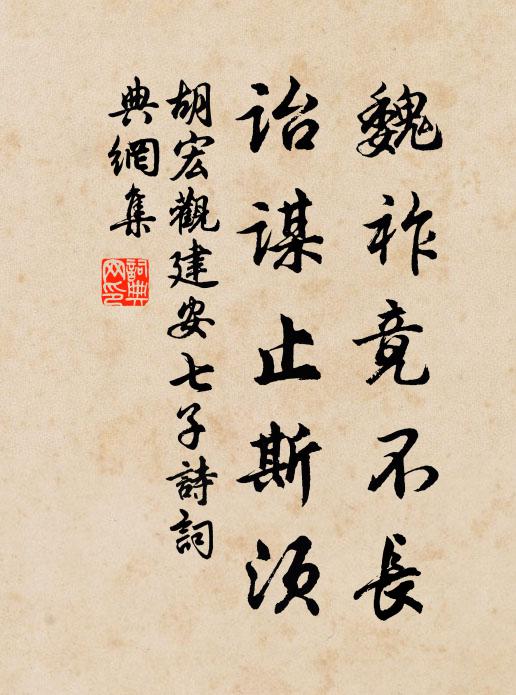 魏祚竟不長
詒謀止斯須
胡宏觀建安七子詩詞
典網集
詞典
网印